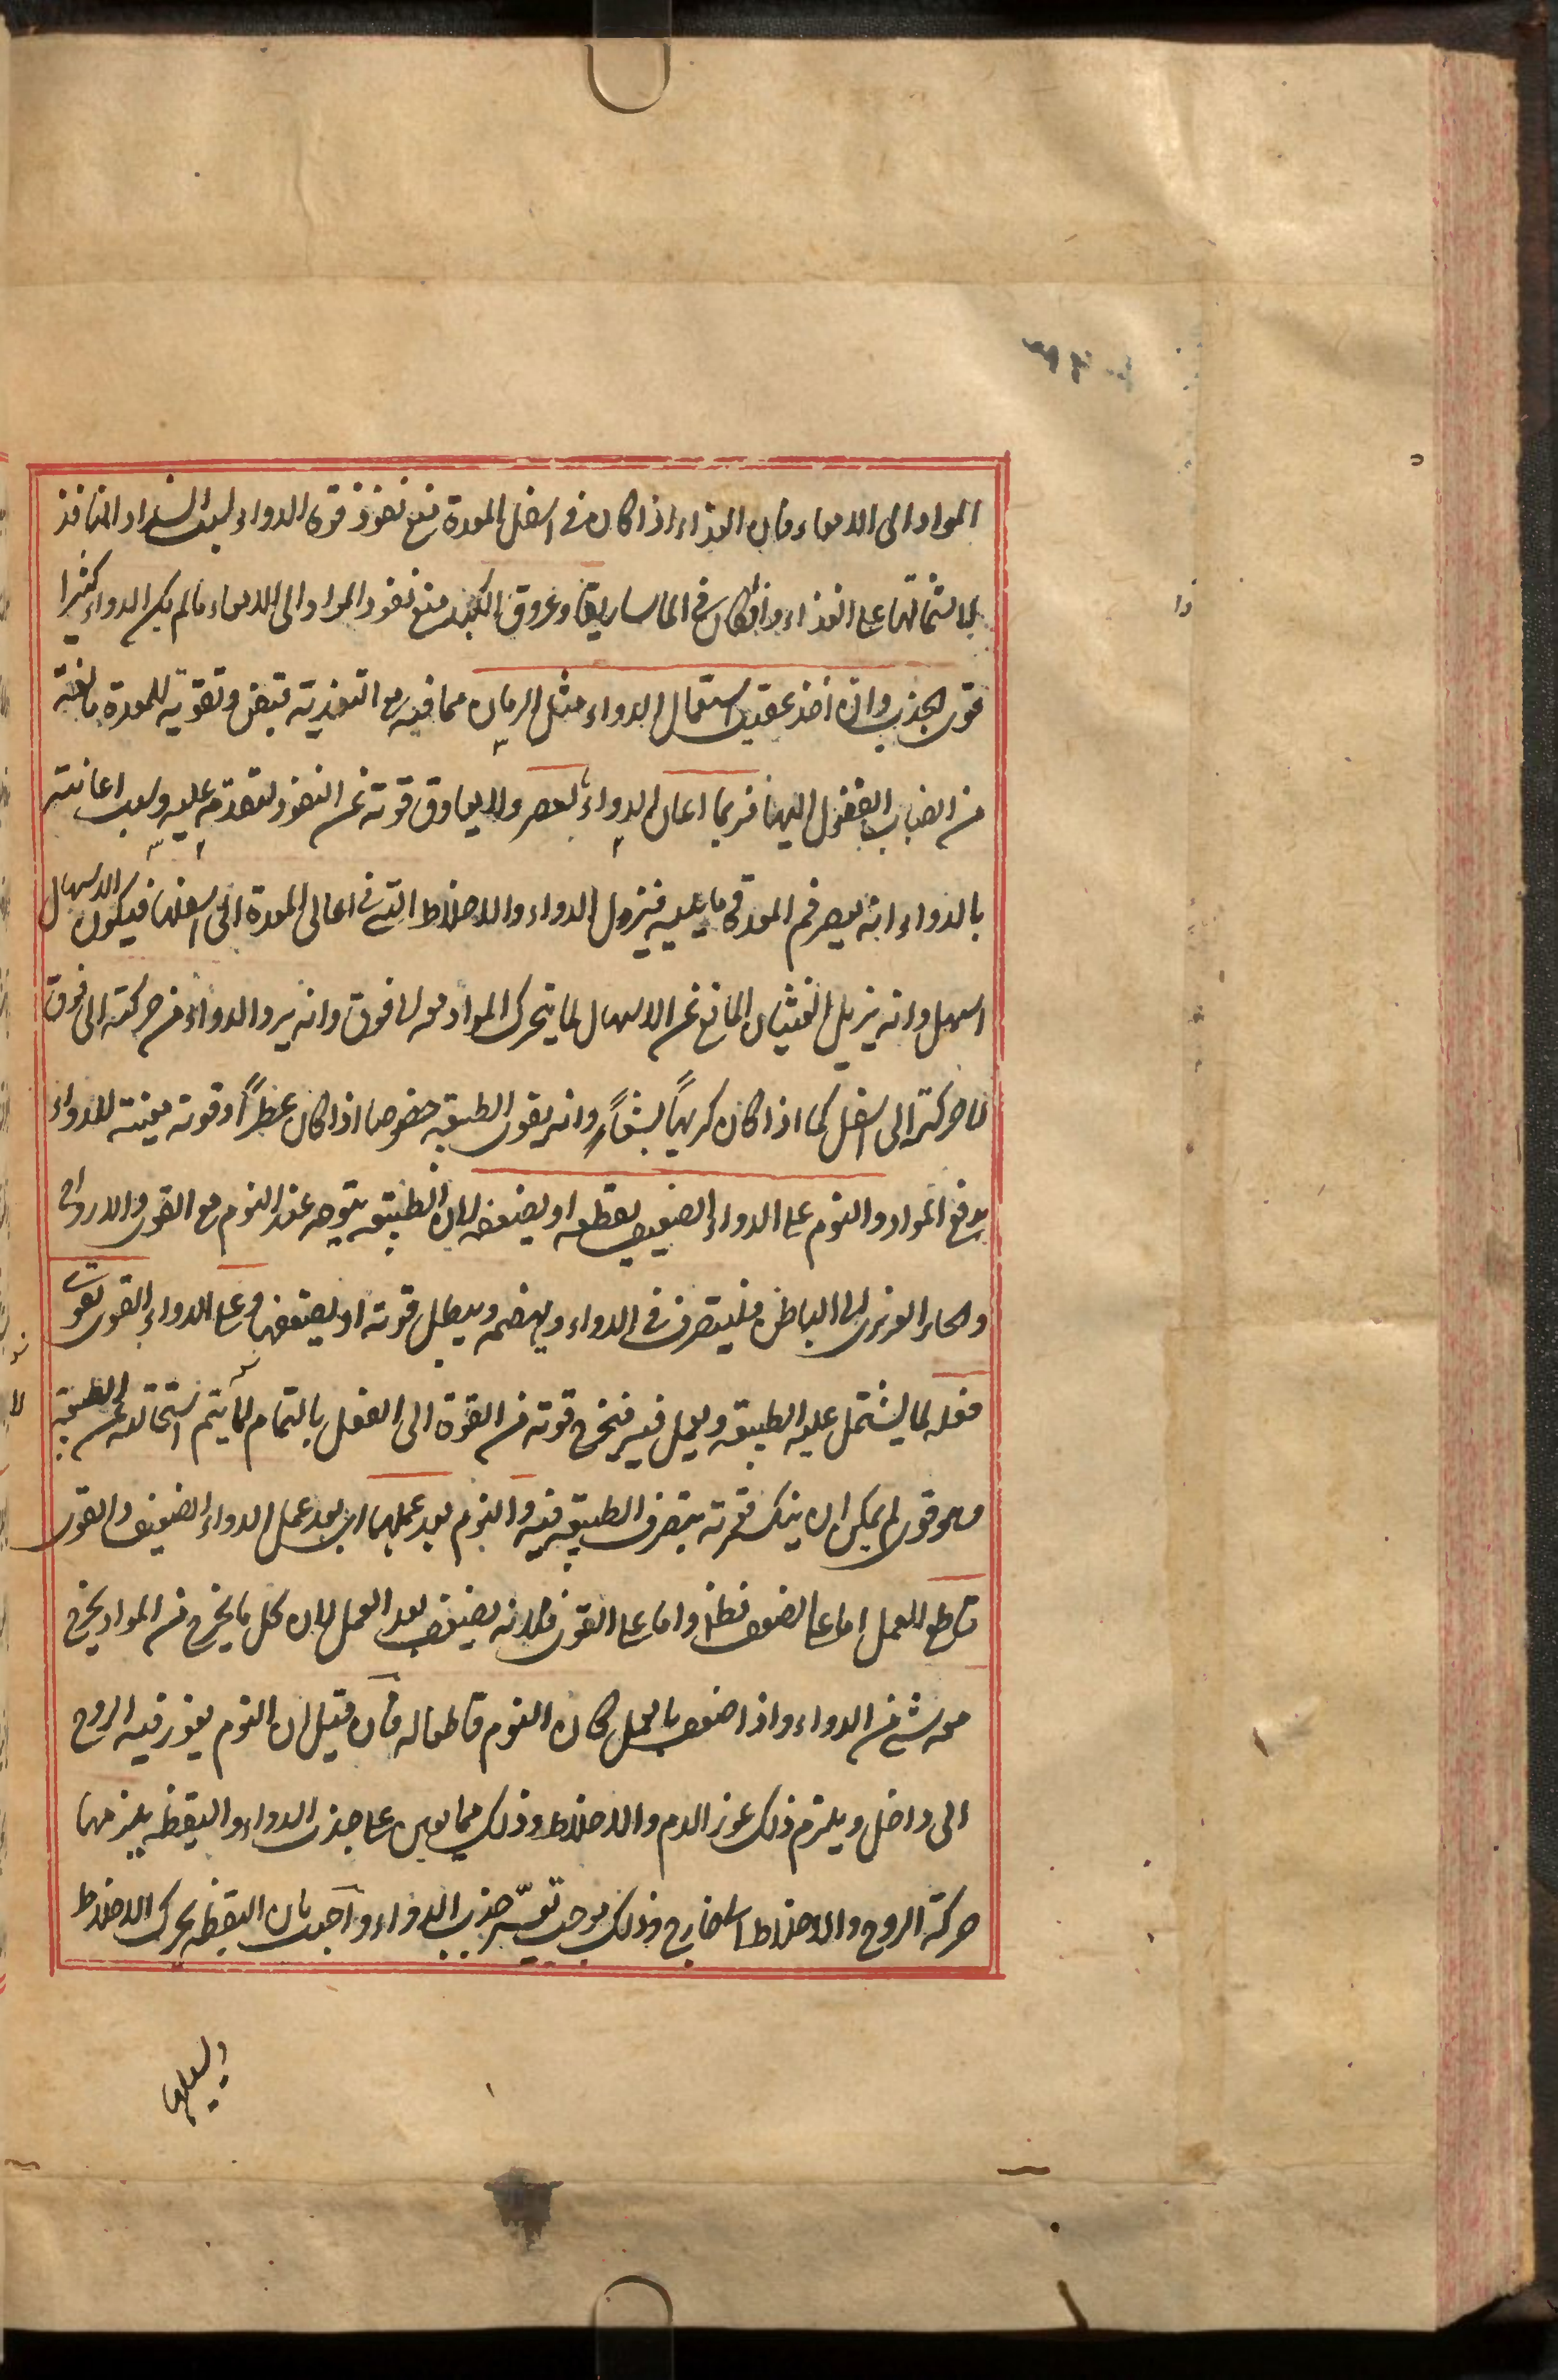 المواد الى الامعاء فان الغذاء اذا كان فى اسفل المعدة منع نفوذ قوة الدواء لسبب انسداد المنافذ
لاشتمالها على الغذاء واذا كان فى الماساريقا وعروق الكبد منع نفوذ المواد الى الامعاء ما لم يكن الدواء كثيرا
قوى الجذب وان اخذ عقيب استعمال الدواء مثل الرمان مما فيه مع التغذية قبض وتقوية للمعدة مانعة
من انصباب الفضول اليها فربما اعان الدواء بالعصر ولا يعاوق قوته عن النفوذ لتقدمه عليه وسبب اعانته
بالدواء انه يعصر فم المعدة وما يليه فينزل الدواء والاخلاط التى فى اعالى المعدة الى اسفلها فيكون الاسهال
اسهل وانه يزيل الغثيان المانع عن الاسهال لما يتحرك المواد معه الى فوق وانه يرد الدواء من حركته الى فوق
الى حركته الى اسفل كما اذا كان كريها بشعًا وانه يقوى الطبيعة خصوصا اذا كان عطرًا وقوته معينة للدواء
بدفع المواد والنوم على الدواء الضعيف يقطعه او يضعفه لان الطبيعة يتوجه عند النوم مع القوى والارواح
والحار الغريزى الى الباطن فليتصرف فى الدواء ويهضمه ويبطل قوته او يضعفها وعلى الدواء القوى يقوى
فعله لما يشتمل عليه الطبيعة ويعمل فيه فيخرج قوته من القوة الى الفعل بالتمام لما يتم استحالته عن الطبيعة
وهو قوى لم يمكن ان ينكسر قوته بتصرف الطبيعة فيه والنوم بعد عملهما اى بعد عمل الدواء الضعيف والقوى
قاطع العمل اما على الضعف فظاهر واما على القوى فلانه يضعف بعد العمل لان كل ما يخرج من المواد يخرج
معه شئ من الدواء واذا ضعف بالعمل كان النوم قاطعا له فان قيل ان النوم يغور فيه الروح
الى داخل ويلزم ذلك غور الدم والاخلاط وذلك مما يعين على جذب الدواء واليقظة يلزمها
حركة الروح والاخلاط الى خارج وذلك يوجب تعسر جذب الدواء واجيب بان اليقظة يحرك الاخلاط